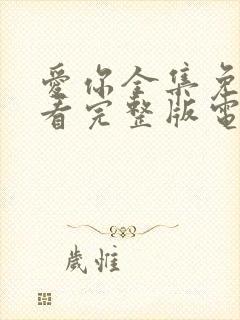 愛你全集免
看完整版電
歲惟